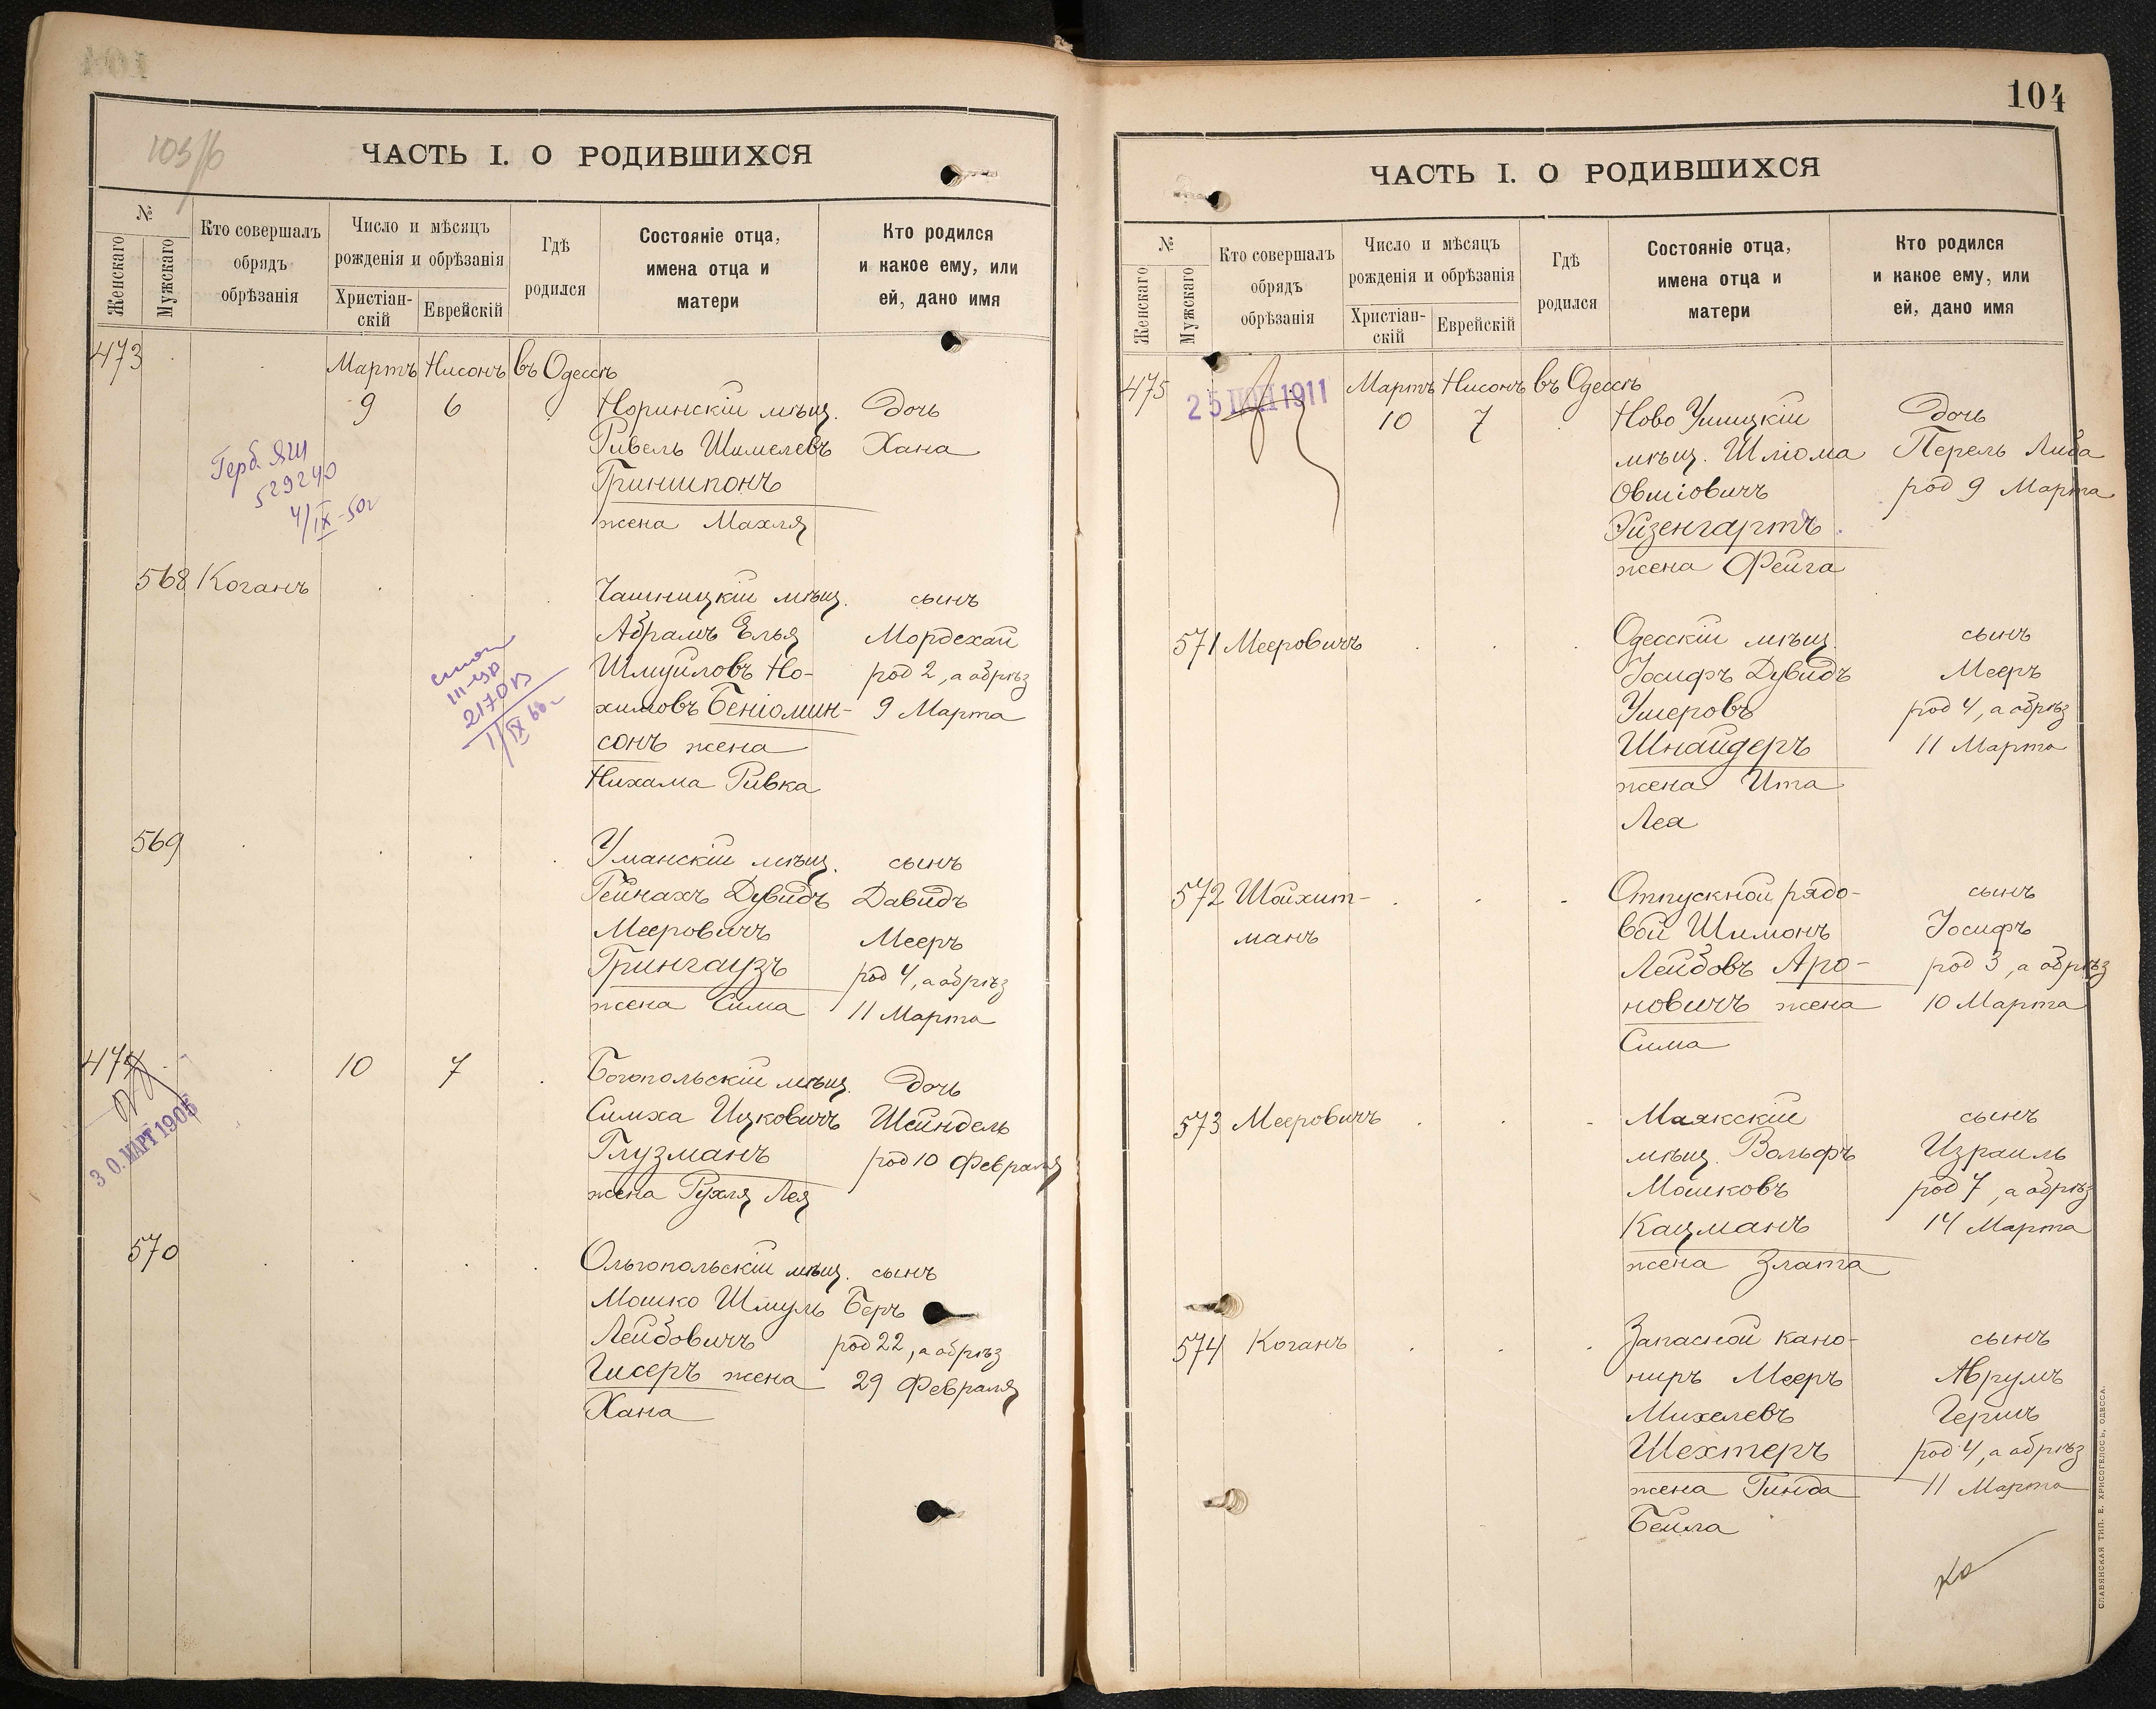 103/б
ЧАСТЬ I. О РОДИВШИХСЯ
№
Женскаго
Мужскаго
Кто совершалъ
обрядъ
обрѣзанія
Число и мѣсяцъ
рожденія и обрѣзанія
Христіан-
скій
Еврейскій
Гдѣ
родился
Состояніе отца,
имена отца и
матери
Кто родился
и какое ему, или
ей, дано имя
473
Мартъ Нисонъ въ Одессѣ
9 6 Норинскій мѣщ. дочь
Ривель Шимелевъ Хана
Гриншпонъ
жена Махля
Герб.
529240
4/IX-50г
568 Коганъ Чашницкій мѣщ. сынъ
Абрамъ Елья Мордехай
Шмуйловъ Но- род 2, а обрѣз
химовъ Беніомин- 9 Марта
сонъ жена
Нихама Ривка
2170
569 Уманскій мѣщ. сынъ
Гейнахъ Дувидъ Давидъ
Мееровичъ Мееръ
Грингаузъ род 4, а обрѣз
жена Сима 11 Марта
474 10 7 Богопольскій мѣщ. дочь
Симха Ицковичъ Шейндель
Глузманъ род 10 Февраля
жена Рухля Лея
30. МАРТ 1905
570 Ольгопольскій мѣщ. сынъ
Мошко Шмуль Беръ
Лейбовичъ род 22, а обрѣз
Гисеръ жена 29 Февраля
Хана
104
ЧАСТЬ I. О РОДИВШИХСЯ
№
Женскаго
Мужскаго
Кто совершалъ
обрядъ
обрѣзанія
Число и мѣсяцъ
рожденія и обрѣзанія
Христіан-
скій
Еврейскій
Гдѣ
родился
Состояніе отца,
имена отца и
матери
Кто родился
и какое ему, или
ей, дано имя
475 Мартъ Нисонъ въ Одессѣ
25 1911
10 7 Ново Ушицкій дочь
мѣщ. Шліома Перель Либа
Овшіовичъ род 9 Марта
Эйзенгартъ
жена Фейга
571 Мееровичъ Одесскій мѣщ. сынъ
Іосифъ Дувидъ Мееръ
Ушеровъ род 4, а обрѣз
Шнайдеръ 11 Марта
жена Ита
Лея
572 Шойхит- Отпускной рядо- сынъ
манъ вой Шимонъ Іосифъ
Лейбовъ Аро- род 3, а обрѣз
новичъ жена 10 Марта
Сима
573 Мееровичъ Маякскій сынъ
мѣщ. Вольфъ Израиль
Мошковъ род 7, а обрѣз
Кацманъ 14 Марта
жена Злата
574 Коганъ Запасной кано- сынъ
ниръ Мееръ Аврумъ
Михелевъ Гершъ
Шехтеръ род 4, а обрѣз
жена Гинда 11 Марта
Бейла
СЛАВЯНСКАЯ ТИП. Е. ХРИСОГЕЛОСЪ, ОДЕССА.